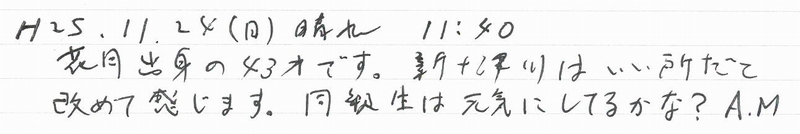 H25.11.24(日) 晴れ 11:40
花月出身の43才です。新十津川はいい所だと
改めて感じます。同級生は元気にしてるかな? A.M